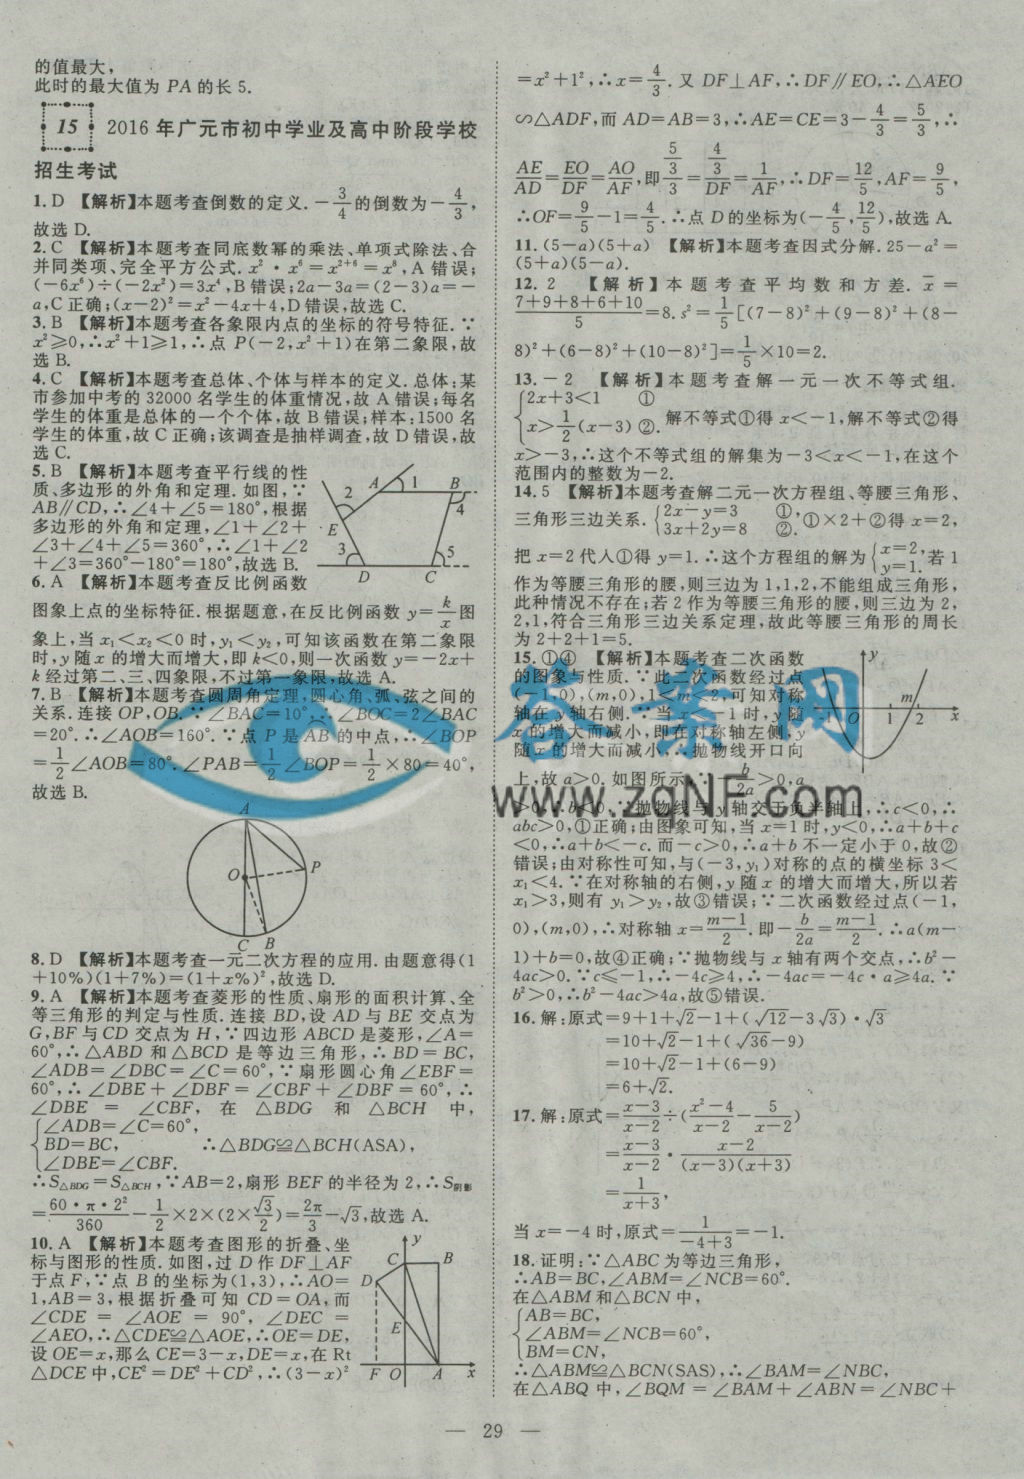 的值最大，
此时的最大值为 PA 的长 5.
15 2016 年广元市初中学业及高中阶段学校
招生考试
1. D 【解析】本题考查倒数的定义. −3/4 的倒数为−4/3，
故选 D.
2. C 【解析】本题考查同底数幂的乘法、单项式除法、合
并同类项、完全平方公式. x²·x⁶=x²⁺⁶=x⁸，A 错误；
(−6x⁶)÷(−2x²)=3x⁴，B 错误；2a−3a=(2−3)a=−
a，C 正确；(x−2)²=x²−4x+4，D 错误，故选 C.
3. B 【解析】本题考查各象限内点的坐标的符号特征. ∵
x²≥0，∴x²+1≥1，∴点 P(−2，x²+1)在第二象限，故
选 B.
4. C 【解析】本题考查总体、个体与样本的定义. 总体：某
市参加中考的 32000 名学生的体重情况，故 A 错误；每名
学生的体重是总体的一个个体，故 B 错误；样本：1500 名
学生的体重，故 C 正确；该调查是抽样调查，故 D 错误，故
选 C.
5. B 【解析】本题考查平行线的性
质、多边形的外角和定理. 如图，∵
AB∥CD，∴∠4+∠5=180°，根据
多边形的外角和定理，∠1+∠2+
∠3+∠4+∠5=360°，∴∠1+∠2
+∠3=360°−180°=180°，故选 B.
A 1 B 2 4 E 3 5 D C
6. A 【解析】本题考查反比例函数
图象上点的坐标特征. 根据题意，在反比例函数 y=k/x 图
象上，当 x₁<x₂<0 时，y₁<y₂，可知该函数在第二象限
时，y 随 x 的增大而增大，即 k<0，则一次函数 y=−2x+
k 经过第二、三、四象限，不过第一象限，故选 A.
7. B 【解析】本题考查圆周角定理，圆心角、弧、弦之间的
关系. 连接 OP，OB. ∵∠BAC=10°，∴∠BOC=2∠BAC
=20°. ∴∠AOB=160°. ∵点 P 是 AB 的中点，∴∠BOP
=1/2∠AOB=80°. ∠PAB=1/2∠BOP=1/2×80=40°，
故选 B.
A P O C B
8. D 【解析】本题考查一元二次方程的应用. 由题意得(1
+10%)(1+7%)=(1+x%)²，故选 D.
9. A 【解析】本题考查菱形的性质、扇形的面积计算、全
等三角形的判定与性质. 连接 BD，设 AD 与 BE 交点为
G，BF 与 CD 交点为 H，∵四边形 ABCD 是菱形，∠A=
60°，∴△ABD 和△BCD 是等边三角形，∴BD=BC，
∠ADB=∠DBC=∠C=60°，∵扇形圆心角∠EBF=
60°，∴∠DBE+∠DBF=∠CBF+∠DBF=60°，∴
∠DBE=∠CBF，在 △BDG 和 △BCH 中，
{∠ADB=∠C=60°，
BD=BC， ∴△BDG≌△BCH(ASA)，
∠DBE=∠CBF.
∴S△BDG=S△BCH，∵AB=2，扇形 BEF 的半径为 2，∴S阴影
=60·π·2²/360−1/2×2×(2×√3/2)=2π/3−√3，故选 A.
10. A 【解析】本题考查图形的折叠、坐
标与图形的性质. 如图，过 D 作 DF⊥AF
于点 F，∵点 B 的坐标为(1，3)，∴AO=
1，AB=3，根据折叠可知 CD=OA，而
∠CDE=∠AOE=90°，∠DEC=
∠AEO，∴△CDE≌△AOE，∴OE=DE，
设 OE=x，那么 CE=3−x，DE=x，在 Rt
△DCE 中，CE²=DE²+CD²，∴(3−x)²
y C B D E F O A x
=x²+1²，∴x=4/3. 又 DF⊥AF，∴DF∥EO，∴△AEO
∽△ADF，而 AD=AB=3，∴AE=CE=3−4/3=5/3，∴
AE/AD=EO/DF=AO/AF，即 (5/3)/3=(4/3)/DF=1/AF，∴DF=12/5，AF=9/5，
∴OF=9/5−1=4/5. ∴点 D 的坐标为(−4/5，12/5)，故选 A.
11. (5−a)(5+a) 【解析】本题考查因式分解. 25−a²=
(5+a)(5−a).
12. 2 【解析】本题考查平均数和方差. x̄=
7+9+8+6+10/5=8. s²=1/5[(7−8)²+(9−8)²+(8−
8)²+(6−8)²+(10−8)²]=1/5×10=2.
13. −2 【解析】本题考查解一元一次不等式组.
{2x+3<1 ①
x>1/2(x−3) ②. 解不等式①得 x<−1，解不等式②得
x>−3，∴这个不等式组的解集为−3<x<−1，在这个
范围内的整数为−2.
14. 5 【解析】本题考查解二元一次方程组、等腰三角形、
三角形三边关系. {2x−y=3 ①， 3x+2y=8 ②. ①×2+②得 x=2，
把 x=2 代入①得 y=1. ∴这个方程组的解为{x=2， y=1. 若 1
作为等腰三角形的腰，则三边为 1，1，2，不能组成三角形，
此种情况不存在；若 2 作为等腰三角形的腰，则三边为 2，
2，1，符合三角形三边关系定理，故此等腰三角形的周长
为 2+2+1=5.
15. ①④ 【解析】本题考查二次函数
的图象与性质. ∵此二次函数经过点
(−1，0)，(m，0)，1<m<2，可知对称
轴在 y 轴右侧. ∵当 x<−1 时，y 随
x 的增大而减小，即在对称轴左侧，y
随 x 的增大而减小，∴抛物线开口向
上，故 a>0. 如图所示，∵−b/2a>0，a
>0，∴b<0，∵抛物线与 y 轴交于负半轴上，∴c<0，∴
abc>0，①正确；由图象可知，当 x=1 时，y<0，∴a+b+c
<0，∴a+b<−c. 而−c>0，∴a+b 不一定小于 0，故②
错误；由对称性可知，与(−3，y₁)对称的点的横坐标 3<
x₁<4. ∵在对称轴的右侧，y 随 x 的增大而增大，所以若
x₁>3，则有 y₁>y₂，故③错误；∵二次函数经过点(−1，
0)，(m，0)，∴对称轴 x=m−1/2. 即−b/2a=m−1/2. ∴a(m−
1)+b=0，故④正确；∵抛物线与 x 轴有两个交点，∴b²−
4ac>0. ∵c≤−1，∴−4c≥4，∴−4ac=−4c·a≥4a. ∵
b²>0，∴b²−4ac>4a，故⑤错误.
y −1 O 1 m 2 x
16. 解：原式=9+1+√2−1+(√12−3√3)·√3
=10+√2−1+(√36−9)
=10+√2−1+(6−9)
=6+√2.
17. 解：原式=x−3/x−2÷(x²−4/x−2−5/x−2)
=x−3/x−2·x−2/(x−3)(x+3)
=1/x+3，
当 x=−4 时，原式=1/−4+3=−1.
18. 证明：∵△ABC 为等边三角形，
∴AB=BC，∠ABM=∠NCB=60°.
在△ABM 和△BCN 中，
{AB=BC，
∠ABM=∠NCB=60°，
BM=CN，
∴△ABM≌△BCN(SAS)，∴∠BAM=∠NBC.
在△ABQ 中，∠BQM=∠BAM+∠ABN=∠NBC+
答案网
www.zqNF.com
— 29 —